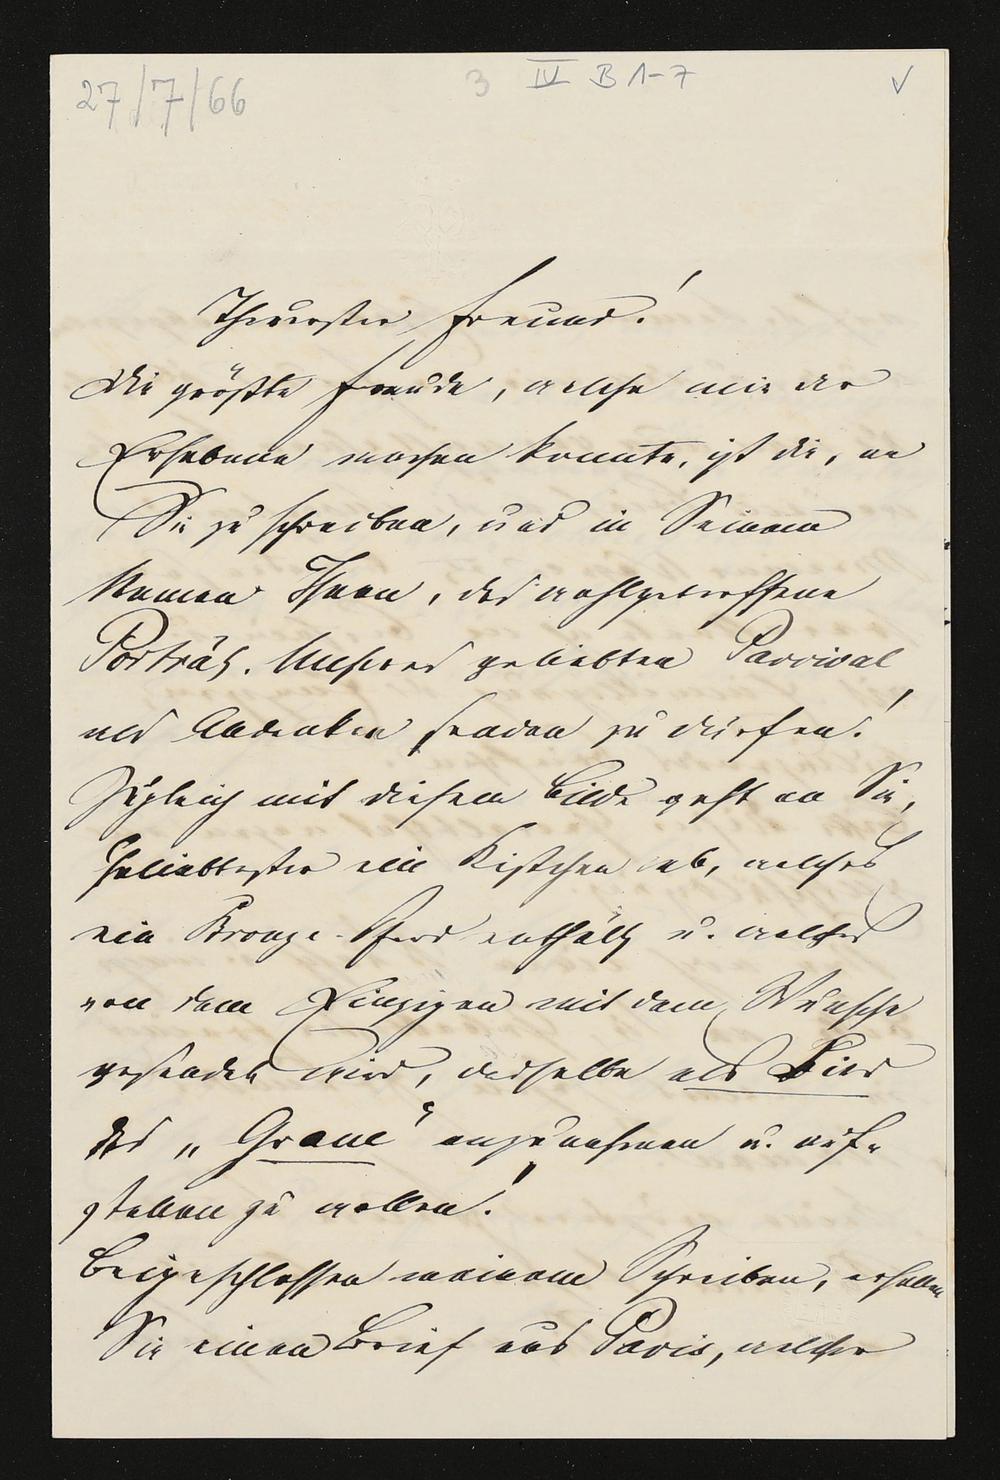 27/7/66
3 IV B 1-7
Theuerster Freund!
Die größte Freude, welche mir der
Erhabene machen konnte, ist die, an
Sie zu schreiben, und in Seinem
Namen Ihnen, das wohlgetroffene
Porträt. Unseres geliebten Parcival
als Andenken senden zu dürfen!
Zugleich mit diesem Bilde geht an Sie,
Geliebtester ein Kistchen ab, welches
ein Bronze-Pferd enthält u. welches
von dem Einzigen mit dem Wunsche
gesendet wird, dasselbe als Bild
des „Grane" anzunehmen u. auf-
stellen zu wollen!
Beigeschlossen meinem Schreiben, erhalten
Sie einen Brief aus Paris, welcher